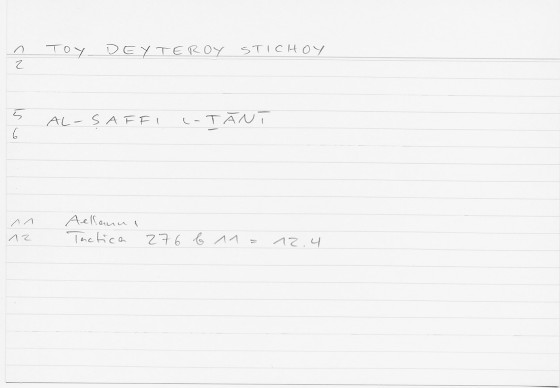 1 TOY DEYTEROY STICHOY
2
5 AL-ṢAFFI L-ṮĀNĪ
6
11 Aelianus,
12 Tactica 276 b 11 = 12.4